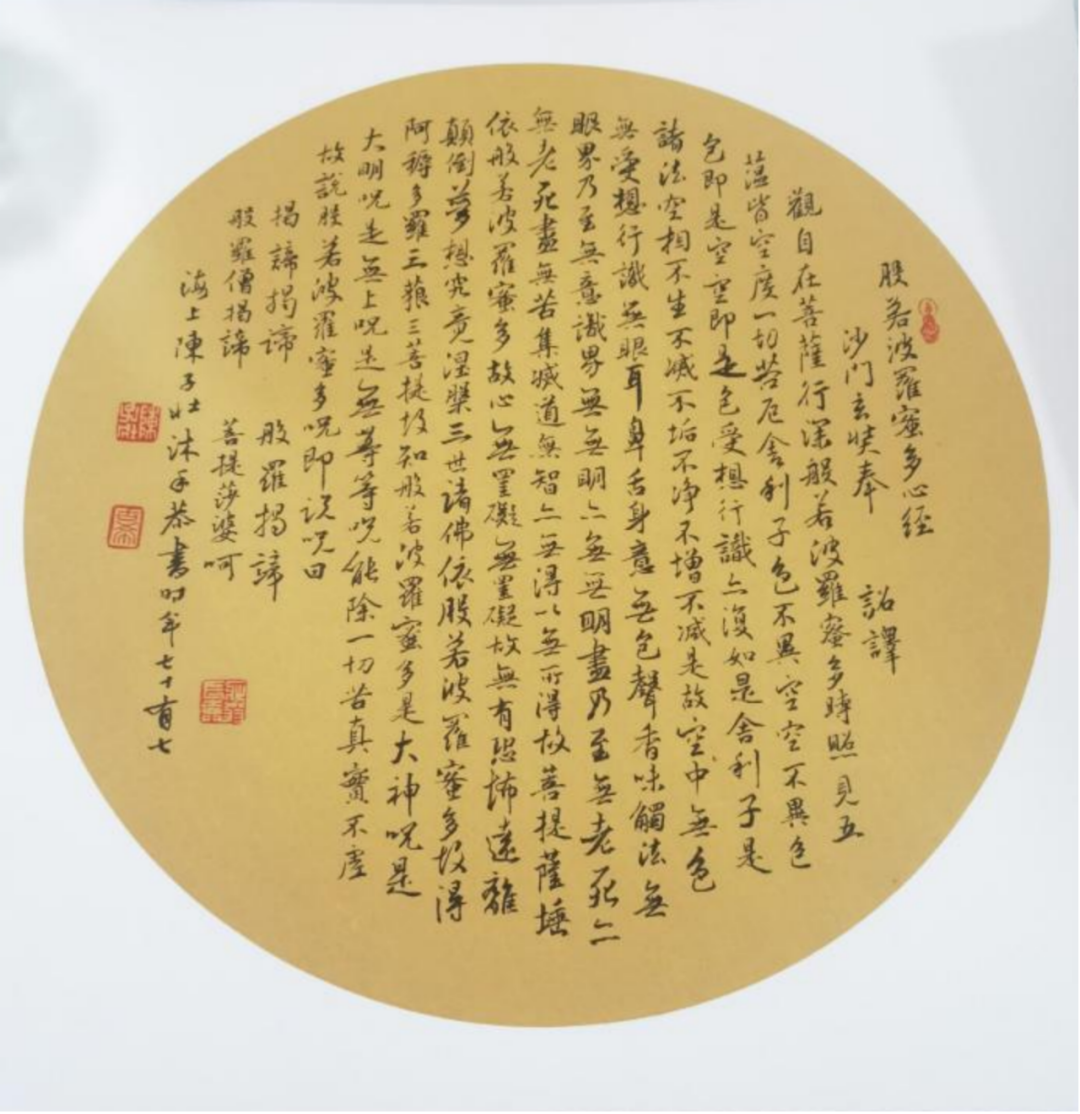 般若波羅蜜多心經
沙門玄奘奉 詔譯
觀自在菩薩行深般若波羅蜜多時照見五
蕰皆空度一切苦厄舍利子色不異空空不異色
色即是空空即是色受想行識亦復如是舍利子是
諸法空相不生不滅不垢不净不增不減是故空中無色
無受想行識無眼耳鼻舌身意無色聲香味觸法無
眼界乃至無意識界無無明亦無無明盡乃至無老死亦
無老死盡無苦集滅道無智亦無得以無所得故菩提薩埵
依般若波羅蜜多故心無罣礙無罣礙故無有恐怖遠離
顛倒夢想究竟涅槃三世諸佛依般若波羅蜜多故得
阿耨多羅三藐三菩提故知般若波羅蜜多是大神咒是
大明咒是無上咒是無等等咒能除一切苦真實不虛
故說般若波羅蜜多咒即說咒曰
揭諦揭諦 般羅揭諦
般羅僧揭諦 菩提莎婆呵
海上陳子壯沐手恭書時年七十有七